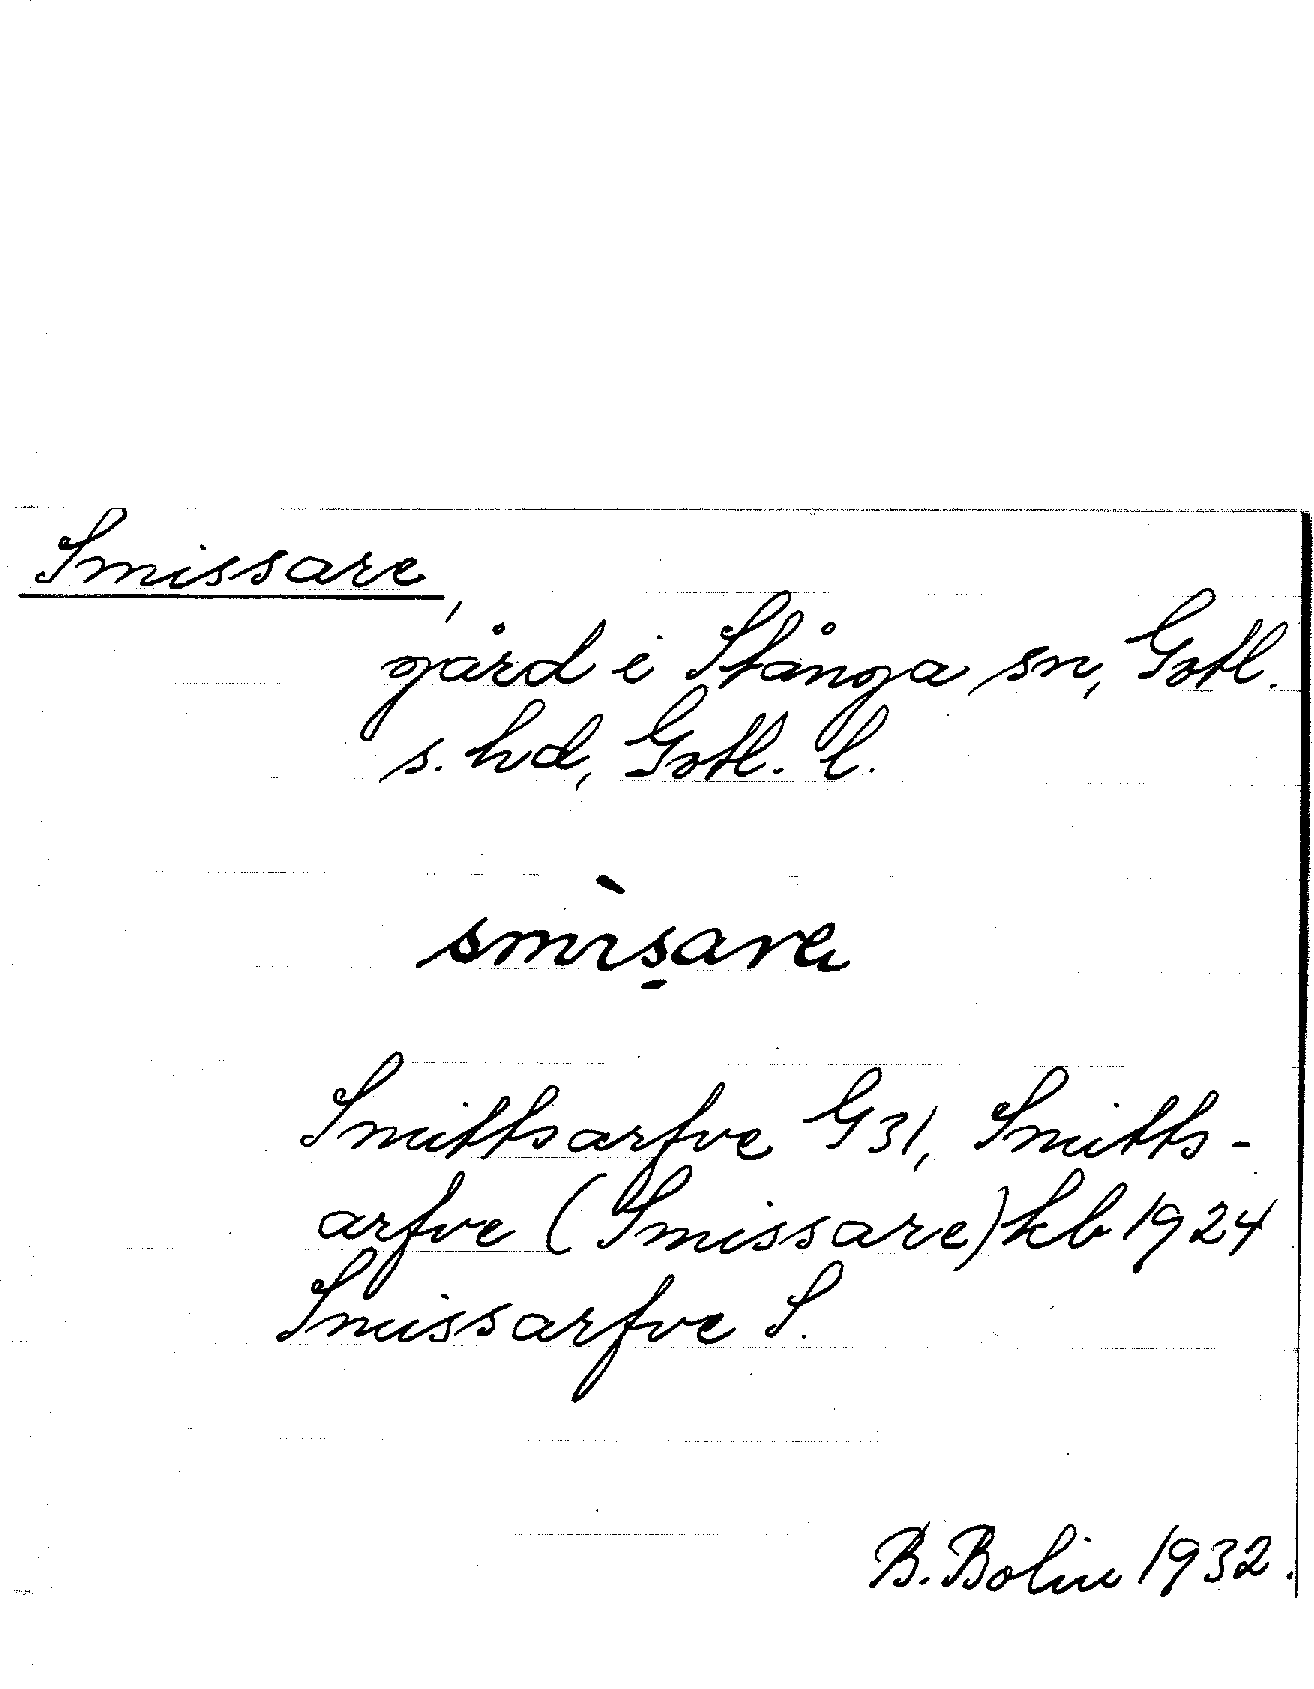 Smissare,
gård i Stånga sn, Gotl.
s. hd, Gotl. l.
smìs̱arɐ
Smittsarfve G31, Smitts-
arfve (Smissare) kb 1924
Smissarfve S.
B. Bolin 1932.